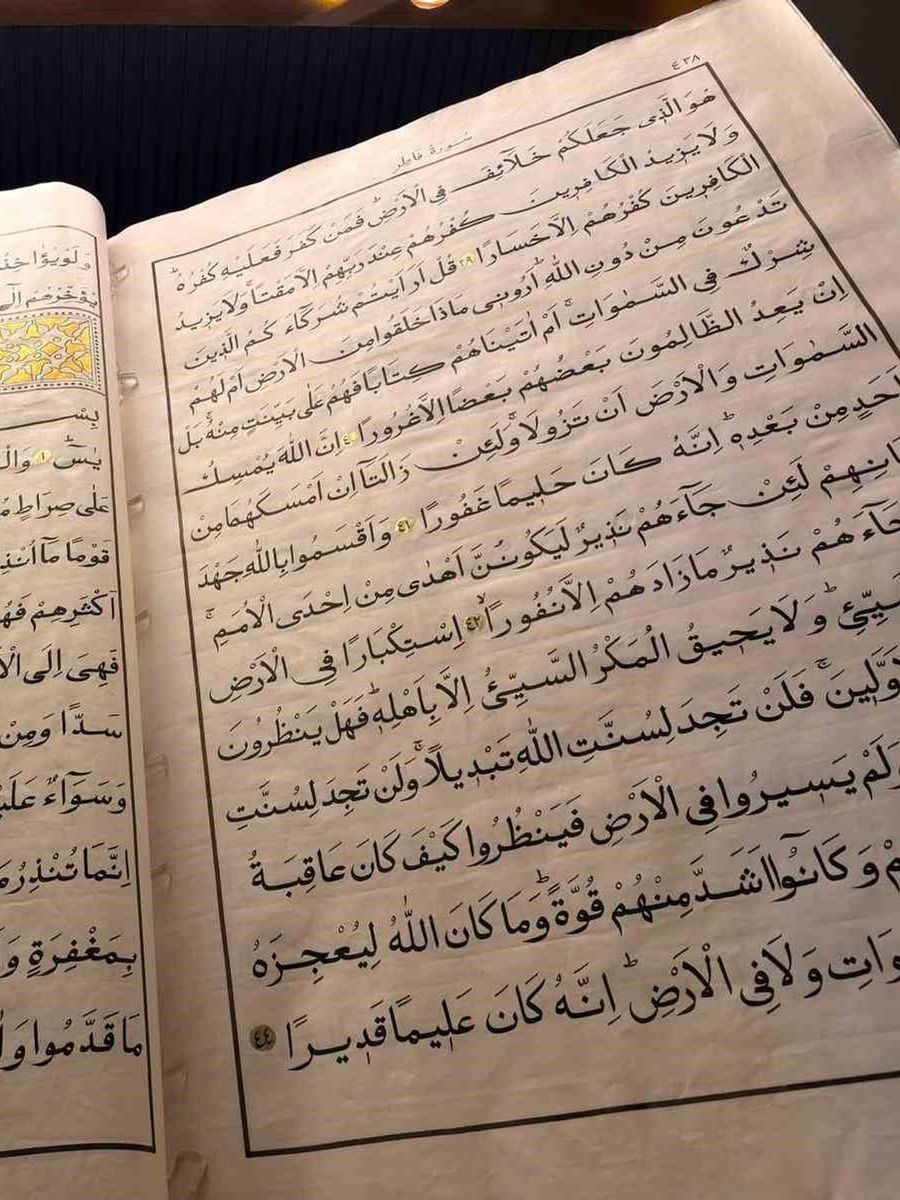 ٤٣٨
سُورَةُ فَاطِر
هُوَ الَّذِى جَعَلَكُمْ خَلَآئِفَ فِى الْاَرْضِۜ فَمَنْ كَفَرَ فَعَلَيْهِ كُفْرُهُۜ
وَلَا يَزِيدُ الْكَافِرِينَ كُفْرُهُمْ عِنْدَ رَبِّهِمْ اِلَّا مَقْتاًۚ وَلَا يَزِيدُ
الْكَافِرِينَ كُفْرُهُمْ اِلَّا خَسَارًا ٣٩ قُلْ اَرَاَيْتُمْ شُرَكَآءَكُمُ الَّذِينَ
تَدْعُونَ مِنْ دُونِ اللّٰهِۜ اَرُونِى مَاذَا خَلَقُوا مِنَ الْاَرْضِ اَمْ لَهُمْ
شِرْكٌ فِى السَّمٰوَاتِۚ اَمْ اٰتَيْنَاهُمْ كِتَابًا فَهُمْ عَلٰى بَيِّنَتٍ مِنْهُۚ بَلْ
اِنْ يَعِدُ الظَّالِمُونَ بَعْضُهُمْ بَعْضًا اِلَّا غُرُورًا ٤٠ اِنَّ اللّٰهَ يُمْسِكُ
السَّمٰوَاتِ وَالْاَرْضَ اَنْ تَزُولَاۚ وَلَئِنْ زَالَتَآ اِنْ اَمْسَكَهُمَا مِنْ
اَحَدٍ مِنْ بَعْدِهِۜ اِنَّهُ كَانَ حَلِيمًا غَفُورًا ٤١ وَاَقْسَمُوا بِاللّٰهِ جَهْدَ
انِهِمْ لَئِنْ جَآءَهُمْ نَذِيرٌ لَيَكُونُنَّ اَهْدٰى مِنْ اِحْدَى الْاُمَمِۚ
جَآءَهُمْ نَذِيرٌ مَازَادَهُمْ اِلَّا نُفُورًا ٤٢ اِسْتِكْبَارًا فِى الْاَرْضِ
سَّيِّئِۜ وَلَا يَحِيقُ الْمَكْرُ السَّيِّئُ اِلَّا بِاَهْلِهِۜ فَهَلْ يَنْظُرُونَ
وَّلِينَۚ فَلَنْ تَجِدَ لِسُنَّتِ اللّٰهِ تَبْدِيلًاۚ وَلَنْ تَجِدَ لِسُنَّتِ
وَلَمْ يَسِيرُوا فِى الْاَرْضِ فَيَنْظُرُوا كَيْفَ كَانَ عَاقِبَةُ
مْ وَكَانُٓوا اَشَدَّ مِنْهُمْ قُوَّةًۜ وَمَا كَانَ اللّٰهُ لِيُعْجِزَهُ
وَاتِ وَلَا فِى الْاَرْضِۜ اِنَّهُ كَانَ عَلِيمًا قَدِيرًا ٤٤
وَلَوْ يُؤَاخِذُ
يُؤَخِّرُهُمْ اِلٰى
بِسْ
يٰسٓۜ ١ وَالْ
عَلٰى صِرَاطٍ مُ
قَوْمًا مَآ اُنْذِ
اَكْثَرِهِمْ فَهُ
فَهِىَ اِلَى الْاَ
سَدًّا وَمِنْ
وَسَوَآءٌ عَلَيْ
اِنَّمَا تُنْذِرُ مَ
بِمَغْفِرَةٍ وَ
مَا قَدَّمُوا وَاٰ